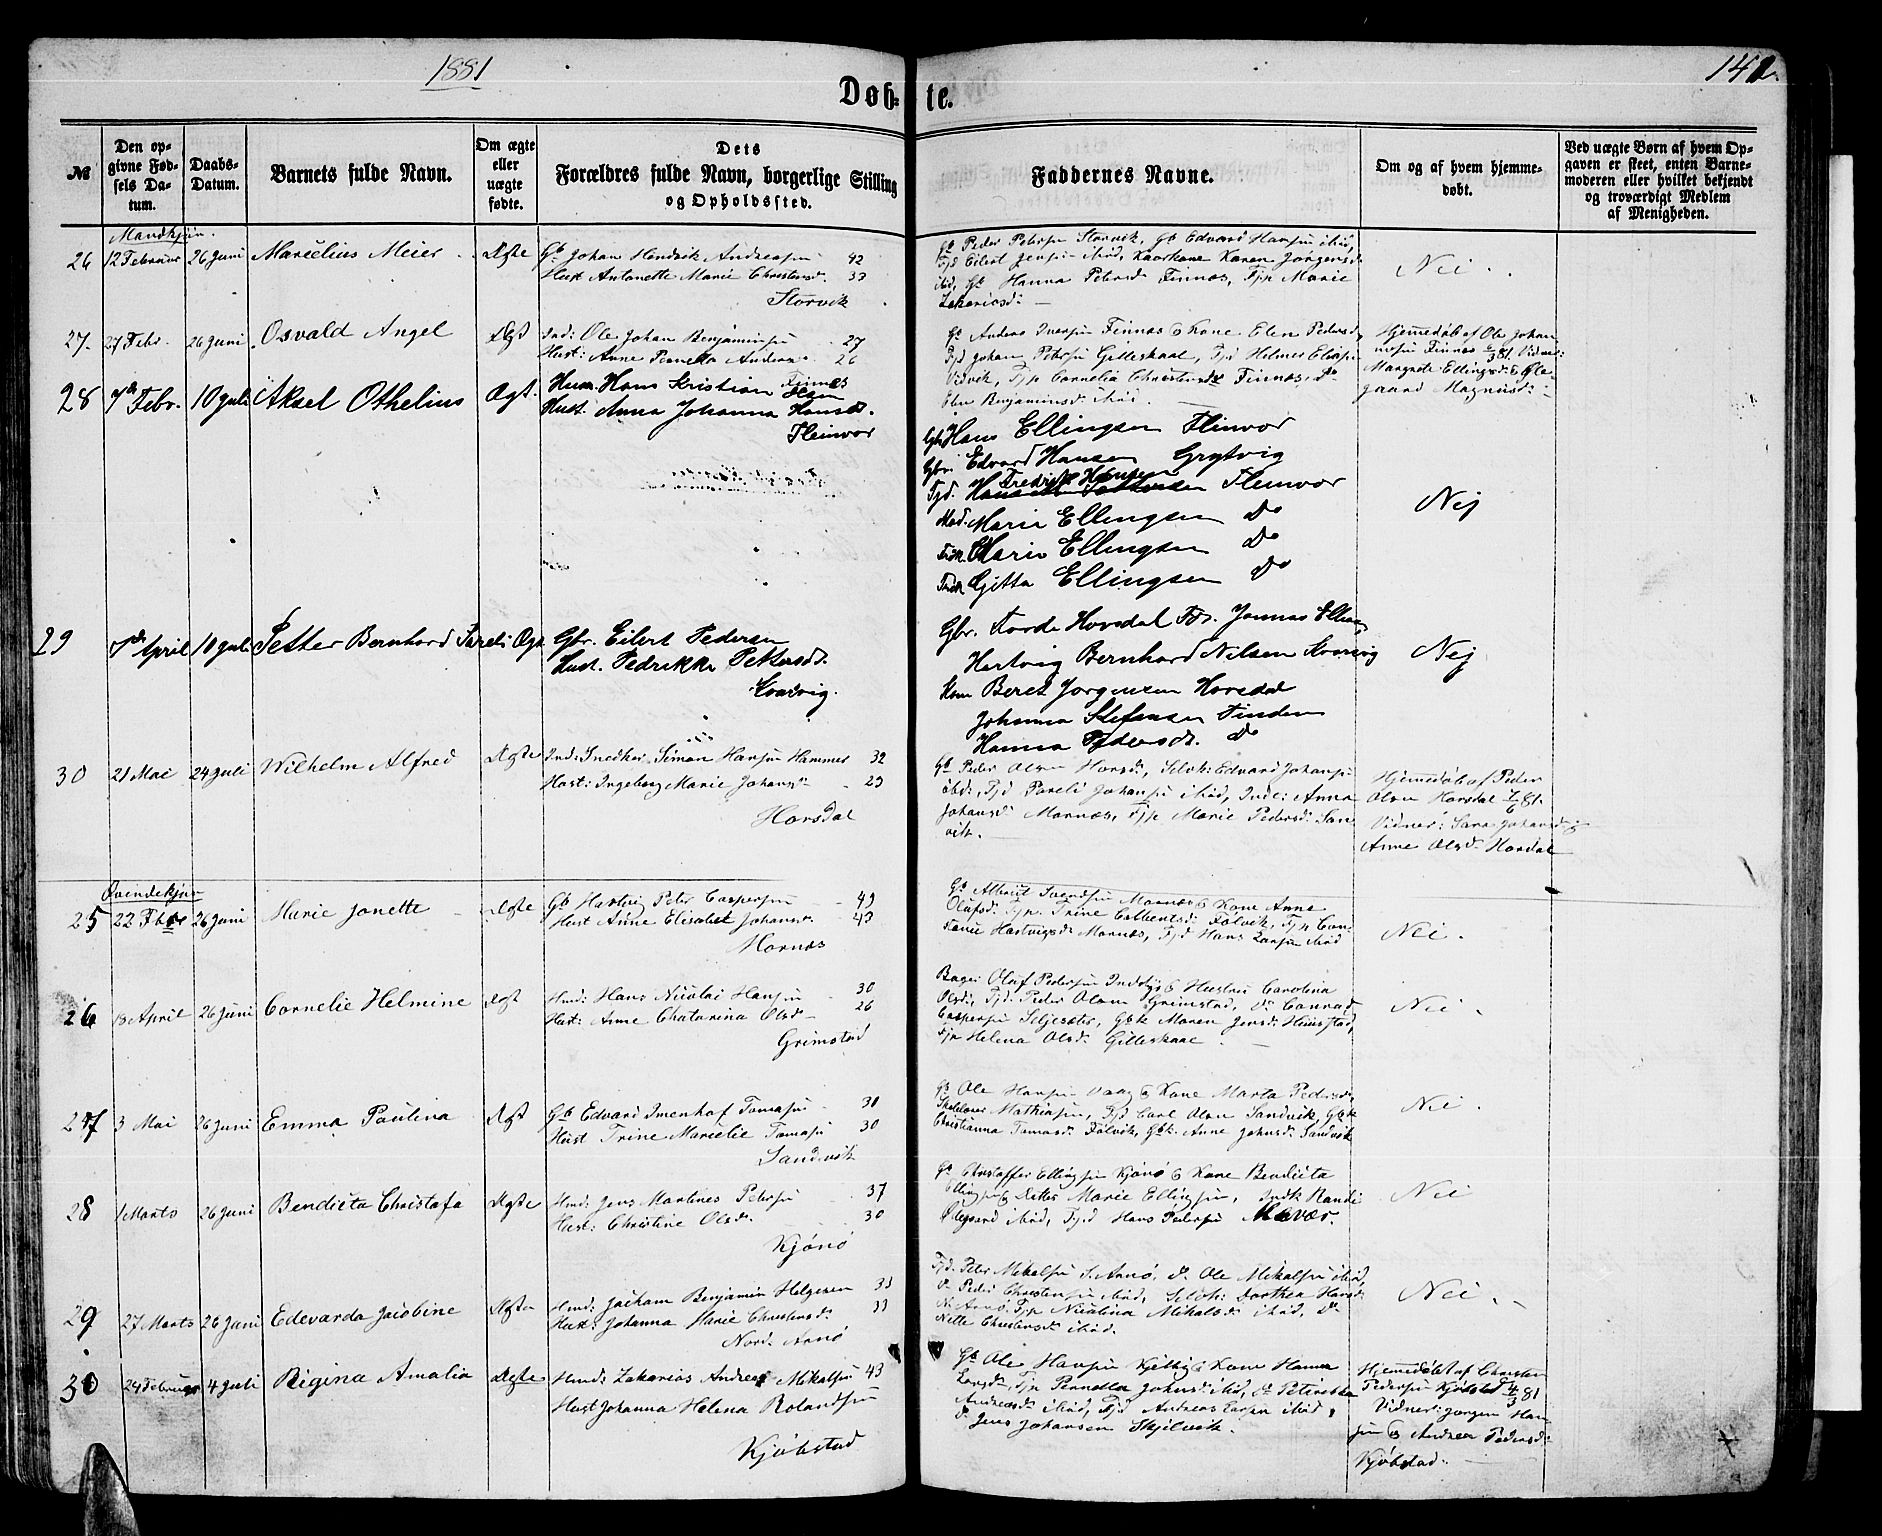 1881
142.
Døb-
te.
№
Den op-
givne Fød-
sels Da-
tum.
Daabs-
Datum.
Barnets fulde Navn.
Om ægte
eller
uægte
fødte.
Dets
Forældres fulde Navn, borgerlige Stilling
og Opholdssted.
Faddernes Navne.
Om og af hvem hjemme-
døbt.
Ved uægte Børn af hvem Op-
gaven er skeet, enten Barne-
moderen eller hvilket bekjendt
og troværdigt Medlem
af Menigheden.
Mandkjøn.
26 12 Februar 26 Juni Marselius Meier Ægte
Gb Johan Hendrik Andreasen 42
Hust Antonette Marie Christensd. 33
Storvik
Gb Peder Petersen Storvik, Gb Edvard Hansen ibid,
Tjd Eilert Jensen ibid, Kaarkone Karen Jørgensd:
ibid, Gk Hanna Petersd: Finnæs, Tjp Marie
Zakariasd:
Nei
27. 27 Febr. 26 Juni Osvald Angel Ægt
Ind: Ole Johan Benjaminsen 27
Hust: Anne Pernella Andersd 26
Finnæs
Gb Anders Iversen Finnæs & Kone Elen Pedersd,
Tjd Johan Petersen Gilleskaal, Tjd Helmer Eliasen
Vidvik, Tjp Cornelia Christensd: Finnæs, Do
Elen Benjaminsd: ibid.
Hjemedøb af Ole Johan
Finnæs 6/3 81. Vidner:
Margrete Ellingsd: & Ole-
gaard Magnusd:
28 7de Febr. 10 Juli Aksel Othelius Ægt.
Husm. Hans Kristian Olsen
Hust. Anna Johanna Hansd.
Fleinvær
Gbr Hans Ellingsen Fleinvær
Gbr. Edvard Hansen Grytvig
Fredrik Hansen
Tjd. Fleinvær
Mad. Marie Ellingsen Do
Marie Ellingsen Do
Gjetta Ellingsen Do
Nej
29 7de April 10 Juli Petter Bernhard Pareli Ægt
Gbr. Eilert Pedersen
Hust. Pedrikke Pettersdt.
Kvarvig.
Gbr. Torde Horsdal Fr. Jonnas Ellias
Hertvig Bernhard Nilsen Kvarvig
Kone Beret Jørgensen Horsdal
Johanna Stefansen Finden
Hanna Pedersdt. Do
Nej
30 21 Mai 24 Juli Wilhelm Alfred Ægte
Ind: Snedker Simon Hansen Hammer 32
Hust: Ingeborg Marie Johansd 29
Horsdal
Gb Peder Olsen Horsd:, Selvei: Edvard Johansen
ibid:, Tjd Pareli Johansen ibid, Inde: Anna
Johansd: Mornæs, Tjp Marie Pedersd: San-
vik.
Hjemedøb af Peder
Olsen Horsdal 7/6 81.
Vidner: Sara Johansd: &
Anne Olsd: Horsdal
Qvindekjøn
25 22 Febr 26 Juni Marie Jonette Ægte
Gb Hartvig Peter Caspersen 49
Hust Anne Elisabet Johansd: 43
Mornæs
Gb Albrigt Svendsen Mornæs & Kone Anne
Olufsd: Tjp. Trine Ealbertsd: Følvik, Tjp Con-
stanse Hartvigsd: Mornæs, Tjd Hans Larsen ibid
Nei.
26 13 April 26 Juni Cornelie Helmine Ægt
Hmd: Hans Nicolai Hansen 30
Hust: Anne Chatarina Olsd 26
Grimstad
Bager Oluf Pedersen Inddyr & Hustru Carolina
Olsd:, Tjd: Peder Olsen Grimstad, Do Conrad
Caspersen Seljesæter, Gbk Maren Jensd: Heimstad,
Tjp Helena Olsd: Gilleskaal
Nei.
27 3 Mai 26 Juni Emma Paulina Ægt
Gb Edvard Imenhof Tomasen 30
Hust Trine Marselie Tomasen 30
Sandvik
Gb Ole Hansen Vaag & Kone Marta Pedersd,
Skolelærer Mathiasen, Tjd Carl Olsen Sandvik, Gbk
Christianna Tomasd: Følvik, Gbk. Anne Johnsd: Sandvik
Nei.
28 1 Marts 26 Juni Bendicta Christofa Ægte
Hmd: Jens Martines Petersen 37
Hust: Christine Olsd. 30
Kjønø
Gb Christoffer Ellingsen Kjønø & Kone Bendicta
Ellingsen & Datter Marie Ellingsen, Indk Randi
Olegaard ibid, Tjd Hans Pedersen Mevær.
Nei
29 27 Marts 26 Juni Edevarda Jacobine Ægte
Hmd: Jacham Benjamin Helgesen 33
Hust: Johanna Marie Christensd: 33
Nord: Arnø
Tjd. Peter Mikalsen S. Arnø, Do Ole Mikalsen ibid,
Do Peder Christensen ibid, Selvk: Dorthea Hansd:
N. Arnø, Tjp Nicolina Mikalsd: ibid, Do
Nette Christensd: ibid.
Nei.
30 24 Februar 4 Juli Regina Amalia Ægte
Hmd: Zakarias Andreas Mikalsen 43
Hust Johanna Helena Rolandsen
Kjøbstad
Gb Ole Hansen Kjelbg & Kone Hanna
Larsd:, Tjp Pernella Johnsd: ibid, Do Peternikka
Andreasd: ibid, Tjd Andreas Larsen ibid,
Do Jens Johansen Skjelvik.
Hjemedøbt af Christen
Pedersen Kjøbstad 4/3 81
Vidner: Jørgen Han-
sen & Andrea Pedersd:
Kjøbstad.